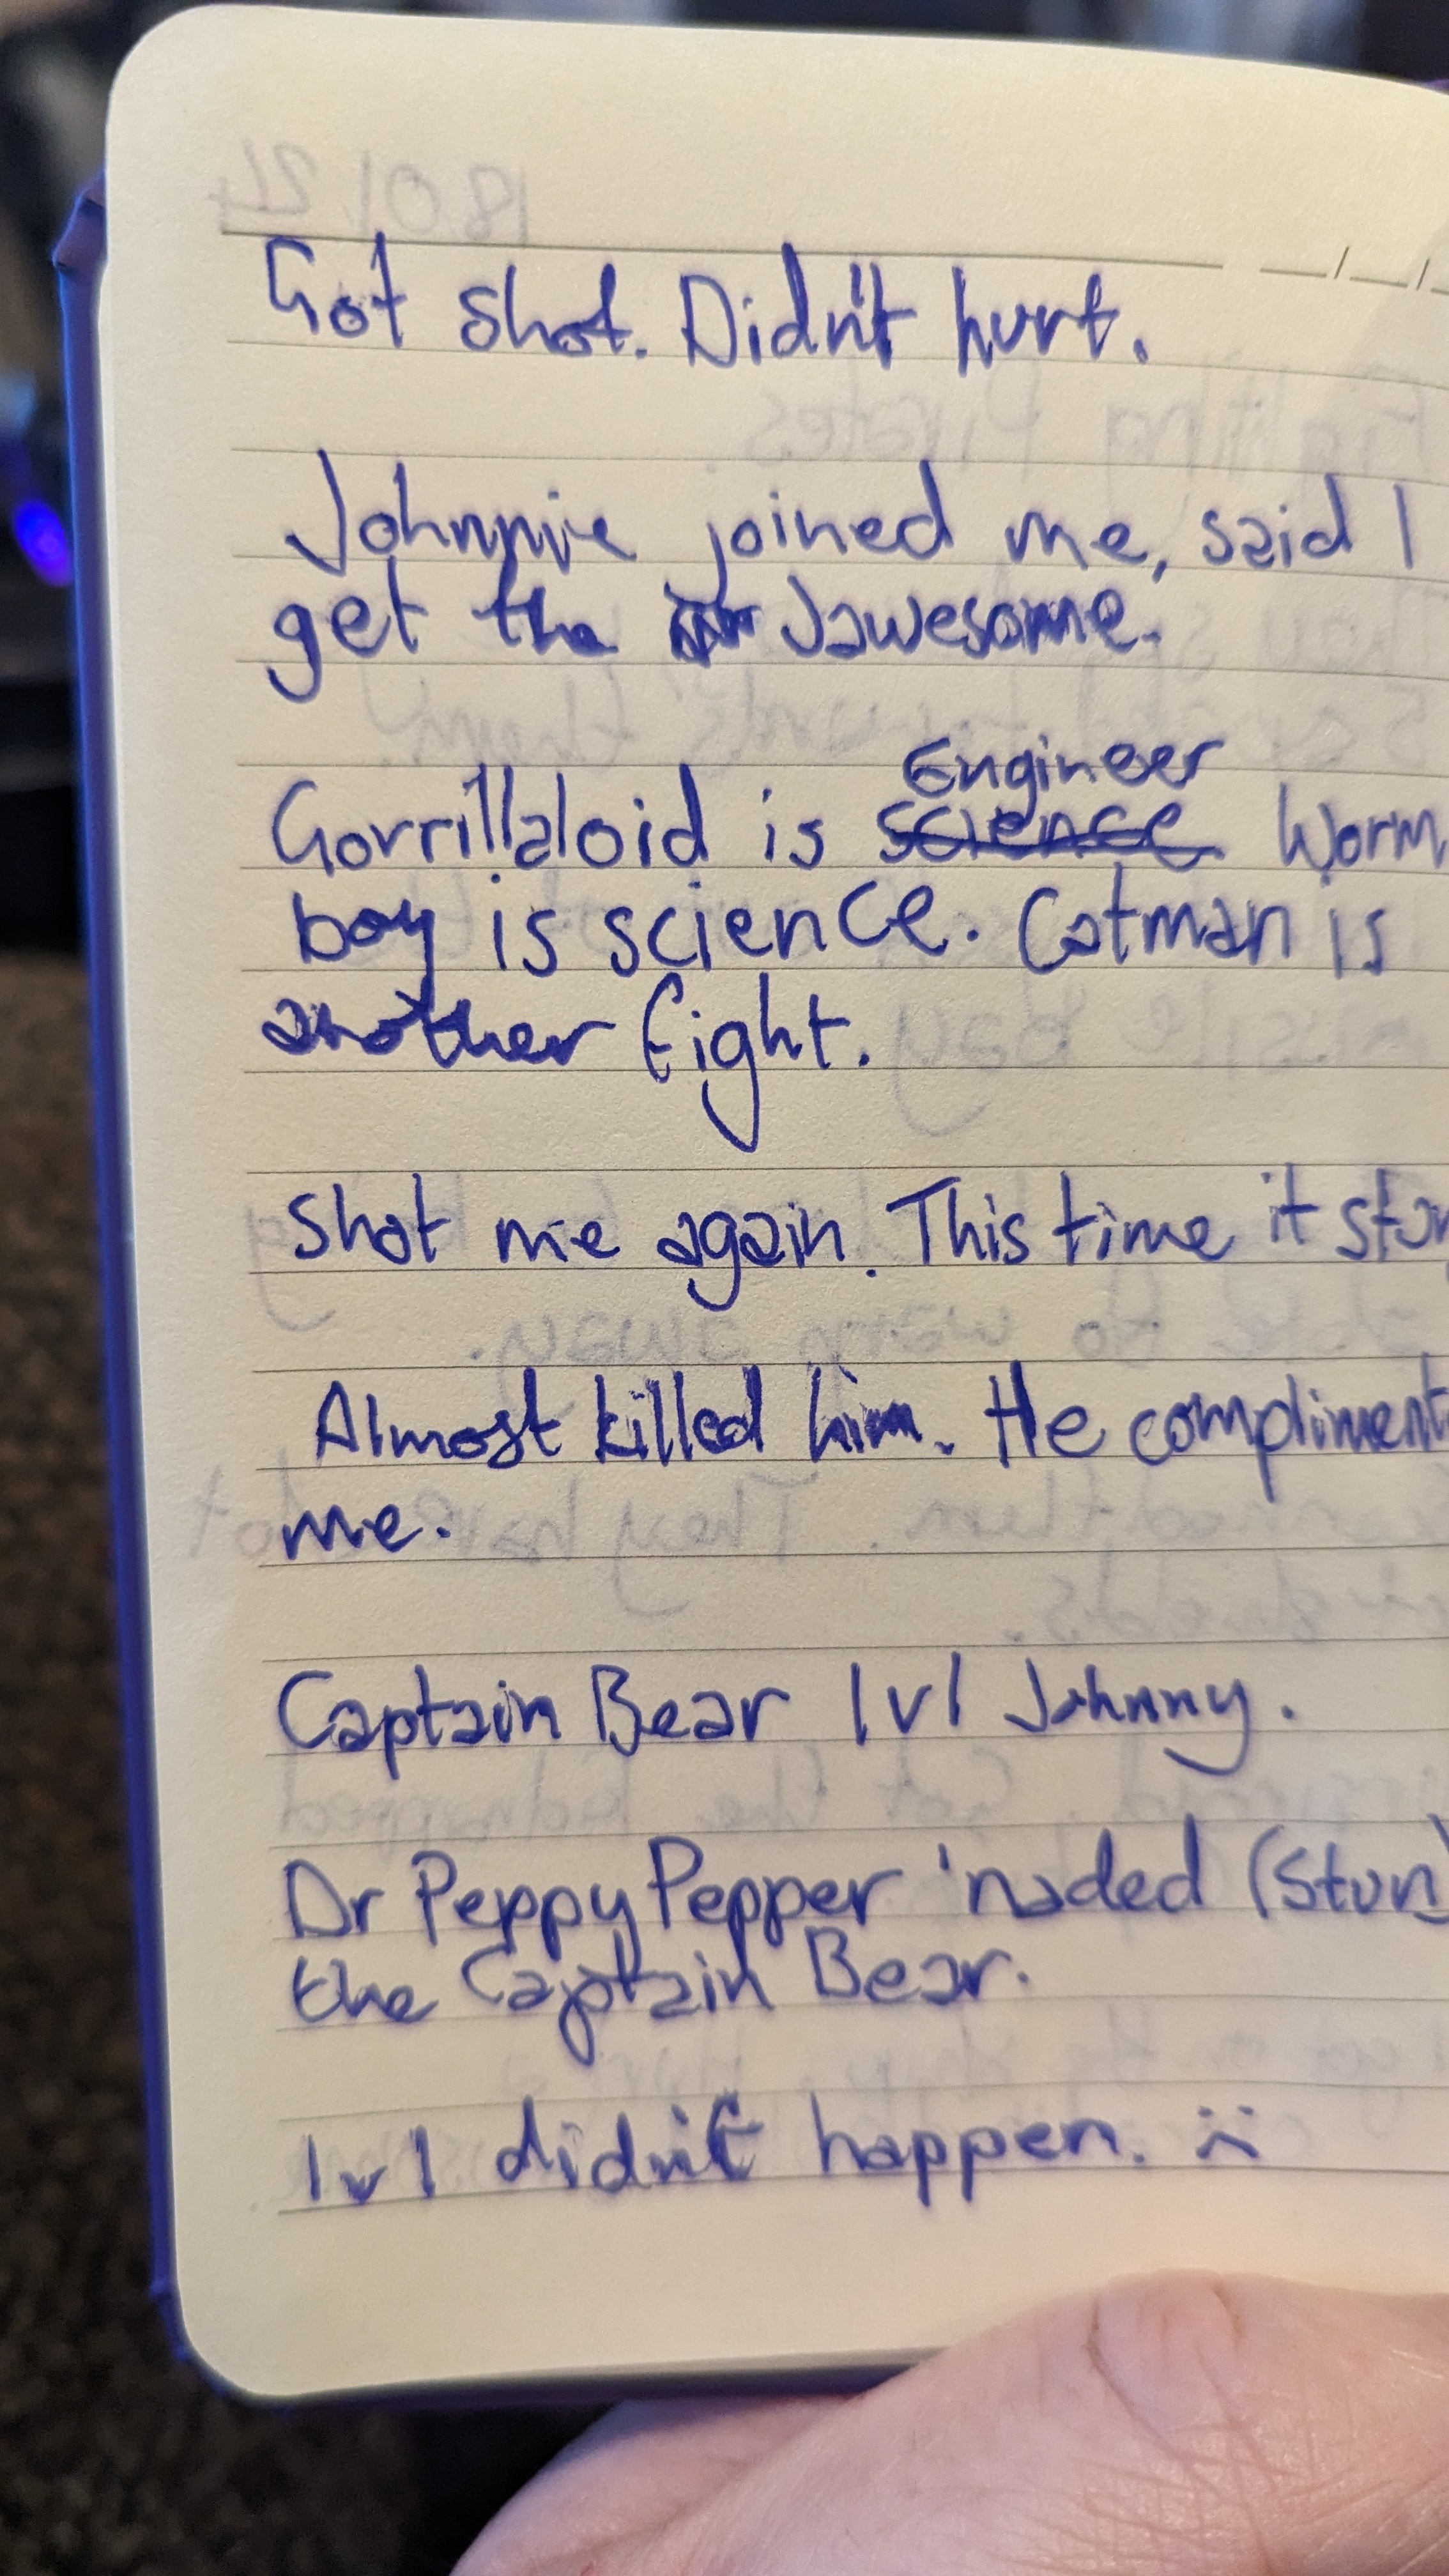 Got shot. Didn't hurt.
Johnnie joined me, said I
get the Jawesome.
Engineer
Gorrillaloid is science Worm
boy is science. Catman is
another fight.
Shot me again. This time it
Almost killed him. He compliment
me.
Captain Bear 1v1 Johnny.
Dr Peppy Pepper 'naded (Stun)
the Captain Bear.
1v1 didn't happen. :(